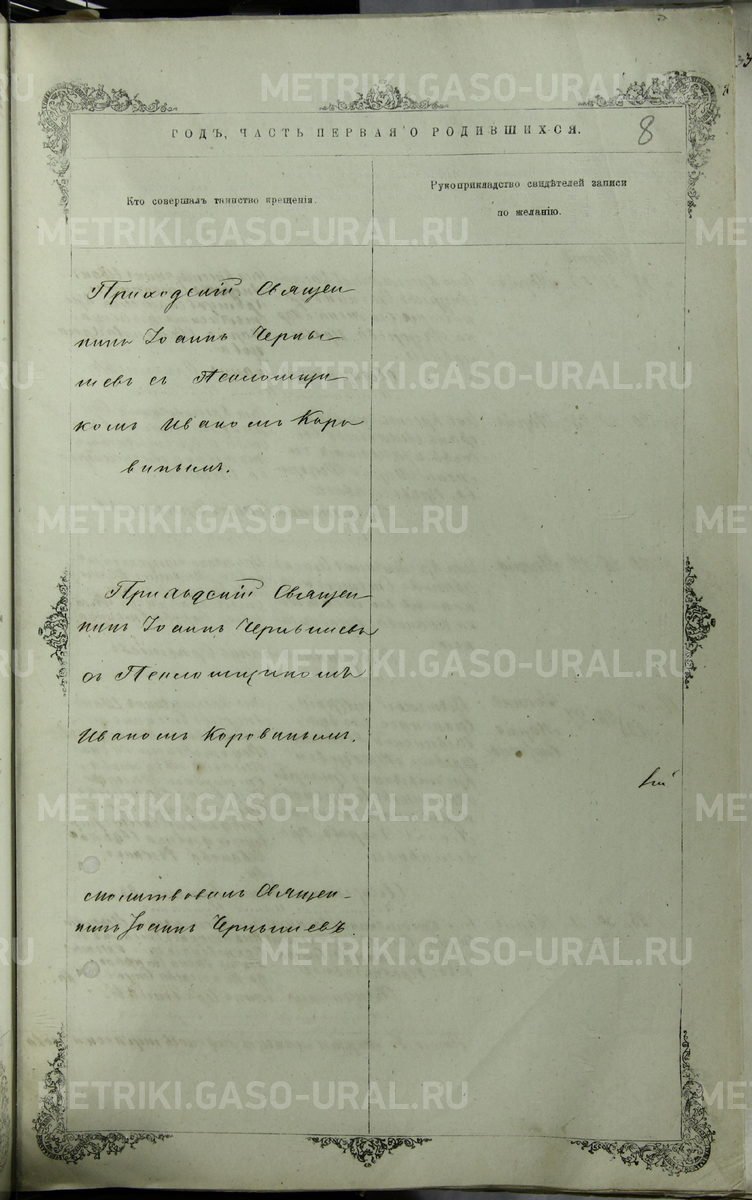 8
ГОДЪ, ЧАСТЬ ПЕРВАЯ О РОДИВШИХСЯ.
Кто совершалъ таинство крещенія.
Рукоприкладство свидѣтелей записи
по желанію.
Приходскій Священ
никъ Іоаннъ Черны
шевъ съ Псаломщи
комъ Иваномъ Коро
винымъ.
Приходскій Священ
никъ Іоаннъ Чернышевъ
съ Псаломщикомъ
Иваномъ Коровинымъ.
смолитвовалъ Священ-
никъ Іоаннъ Чернышевъ.
METRIKI.GASO-URAL.RU